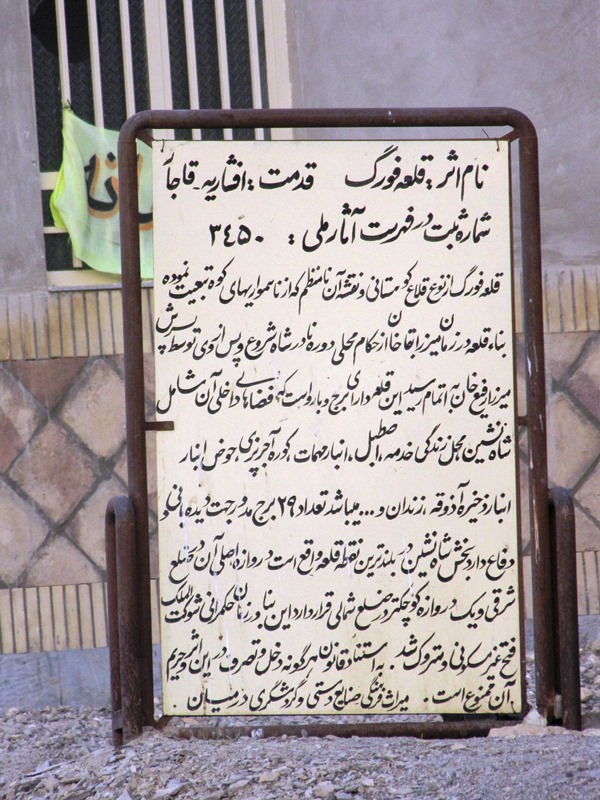 نام اثر : قلعه فورگ قدمت : افشاریه قاجار
شماره ثبت در فهرست آثار ملی : ۳٤۵۰
قلعه فورگ از نوع قلاع کوهستانی و نقشه آن نامنظم که از ناهمواریهای کوه تبعیت نموده
بناء قلعه در زمان میرزا بقاخان از حکام محلی دوره نادر شاه شروع و پس از وی توسط پسرش
میرزا رفیع خان به اتمام رسید این قلعه دارای برج و بارو است که فضاهای داخلی آن شامل
شاه نشین، محل زندگی خدمه، اصطبل، انبار مهمات، کوره آجرپزی، حوض انبار
انبار ذخیره آذوقه، زندان و... میباشد تعداد ۲۹ برج مدور جهت دیده بانی و
دفاع دارد بخش شاه نشین در بلندترین نقطه قلعه واقع است دروازه اصلی آن در ضلع
شرقی و یک دروازه کوچکتر در ضلع شمالی قرار دارد این بنا در زمان حکمرانی شوکت الملک
فتح غیر مسکونی و متروک شد . به استناد قانون هرگونه دخل و تصرف در این اثر و حریم
آن ممنوع است . میراث فرهنگی صنایع دستی و گردشگری درمیان .